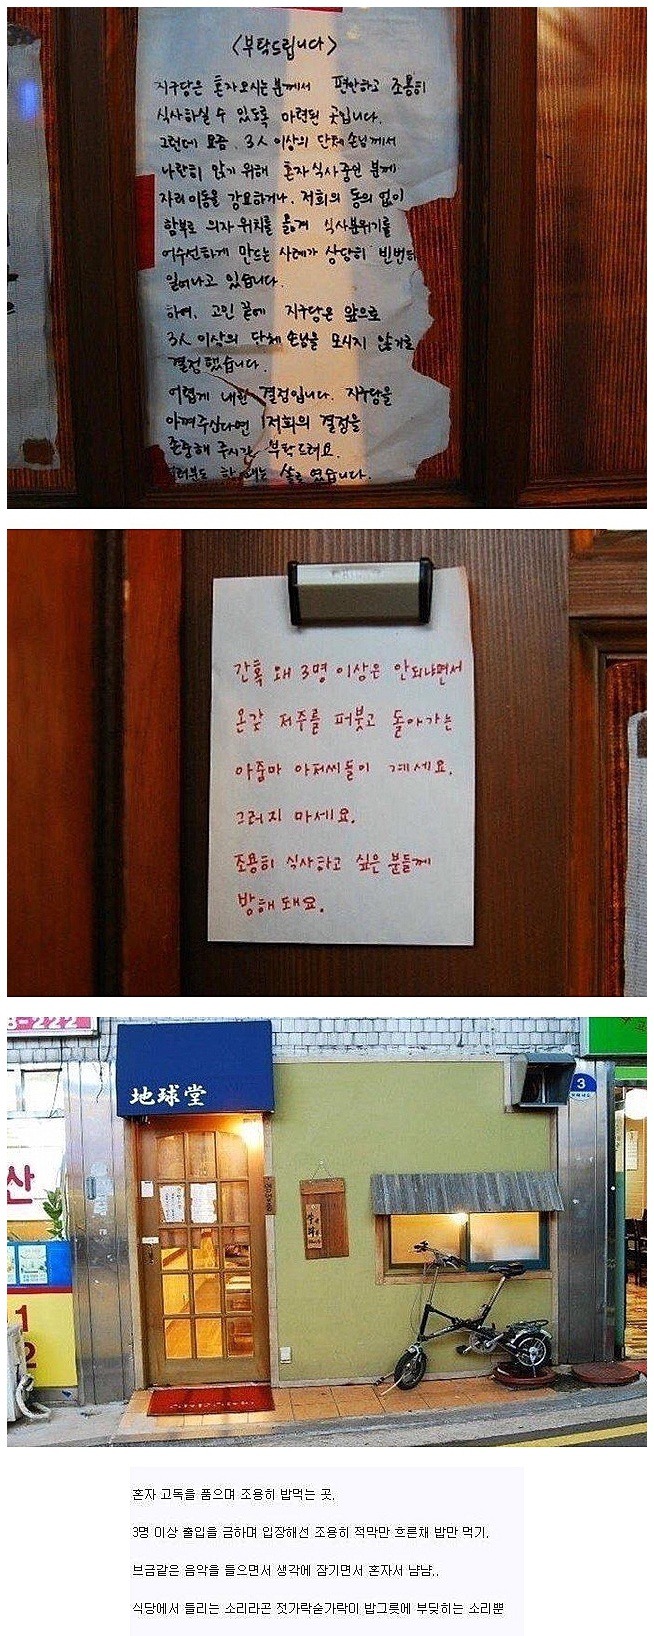 <부탁드립니다>
지구당은 혼자오시는 분께서 편안하고 조용히
식사하실 수 있도록 마련된 곳입니다.
그런데 요즘, 3人 이상의 단체 손님께서
나란히 앉기 위해 혼자 식사중인 분께
자리이동을 강요하거나, 저희의 동의 없이
함부로 의자 위치를 옮겨 식사분위기를
어수선하게 만드는 사례가 상당히 빈번히
일어나고 있습니다.
하여, 고민 끝에 지구당은 앞으로
3人 이상의 단체 손님을 모시지 않기로
결정했습니다.
어렵게 내린 결정입니다. 지구당을
아껴주신다면 저희의 결정을
존중해 주시길 부탁드려요.
간혹 왜 3명 이상은 안되냐면서
온갖 저주를 퍼붓고 돌아가는
아줌마 아저씨들이 계세요.
그러지 마세요.
조용히 식사하고 싶은 분들께
방해돼요.
地球堂
3
산
1
2
혼자 고독을 품으며 조용히 밥먹는 곳.
3명 이상 출입을 금하며 입장해선 조용히 적막만 흐른채 밥만 먹기.
브금같은 음악을 들으면서 생각에 잠기면서 혼자서 냠냠..
식당에서 들리는 소리라곤 젓가락숟가락이 밥그릇에 부딪히는 소리뿐